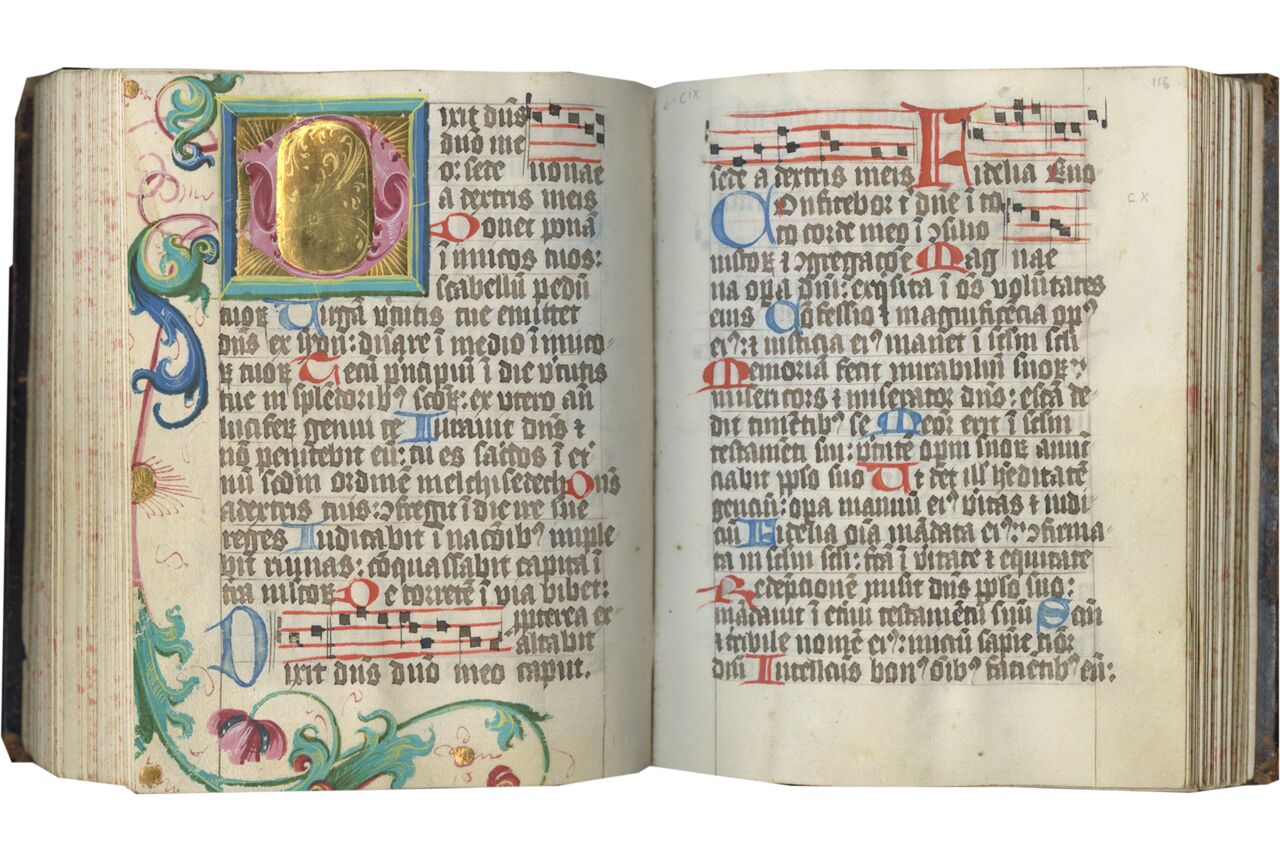 Dixit dn̄s
dn̄o me
o: sede nonae
a dextris meis
Donec ponā
inimicos tuos:
scabellū pedū
tuoꝝ Uirgā v̄tutis tue emittet
dn̄s ex syon: dn̄are ī medio īimico-
ꝝ tuoꝝ Tecū p̄ncipiū ī die v̄tutis
tue in splēdorib⁹ sc̄oꝝ: ex vtero añ
luciferꝝ genui te Iurauit dn̄s ⁊
nō penitebit eū: tu es sac̄dos ī et̄
nū sc̄dm ordinē melchisedech Dn̄s
a dextris tuis: ꝯfregit ī die ire sue
reges Iudicabit ī nac̄oib⁹ imple-
bit ruinas: cōquassabit capita ī
t̄ra m̄ltoꝝ De torrēte ī via bibet:
ꝓpterea ex-
altabit
Dixit dn̄s dn̄o meo caput.
CIX
116
sede a dextris meis Fidelia Euo
CX
Confitebor t̄ dn̄e ī to
to corde meo ī ꝯsilio
iustoꝝ ⁊ ꝯgregac̄oe Mag nae
na oꝑa dn̄i: exq̄sita ī os volūtates
eius Cōfessio ⁊ magnificēcia op⁹
ei⁹: ⁊ iusticia ei⁹ manet ī sc̄lm sc̄li
Memoriā fecit mirabiliū suoꝝ:
misericors ⁊ miserator dn̄s: escā de-
dit timētib⁹ se Meōr erit ī sc̄lm
testamēti sui: v̄tutē oꝑm suoꝝ anūc
ciabit pp̄lo suo Ut det ill̄ h̄editatē
genciū: oꝑa manuū ei⁹ v̄itas ⁊ iudi-
ciū Fidelia oīa mādata ei⁹: ꝯfirma-
ta in sc̄lm sc̄li: fc̄a ī v̄itate ⁊ equitate
Redēpcionē misit dn̄s pp̄lo suo:
mādauit ī et̄nū testamētū suū Sc̄m
⁊ t̄ribile nomē ei⁹: iniciū sapīe timōr
dn̄i Intellectus bon⁹ oīb⁹ faciētib⁹ eū: